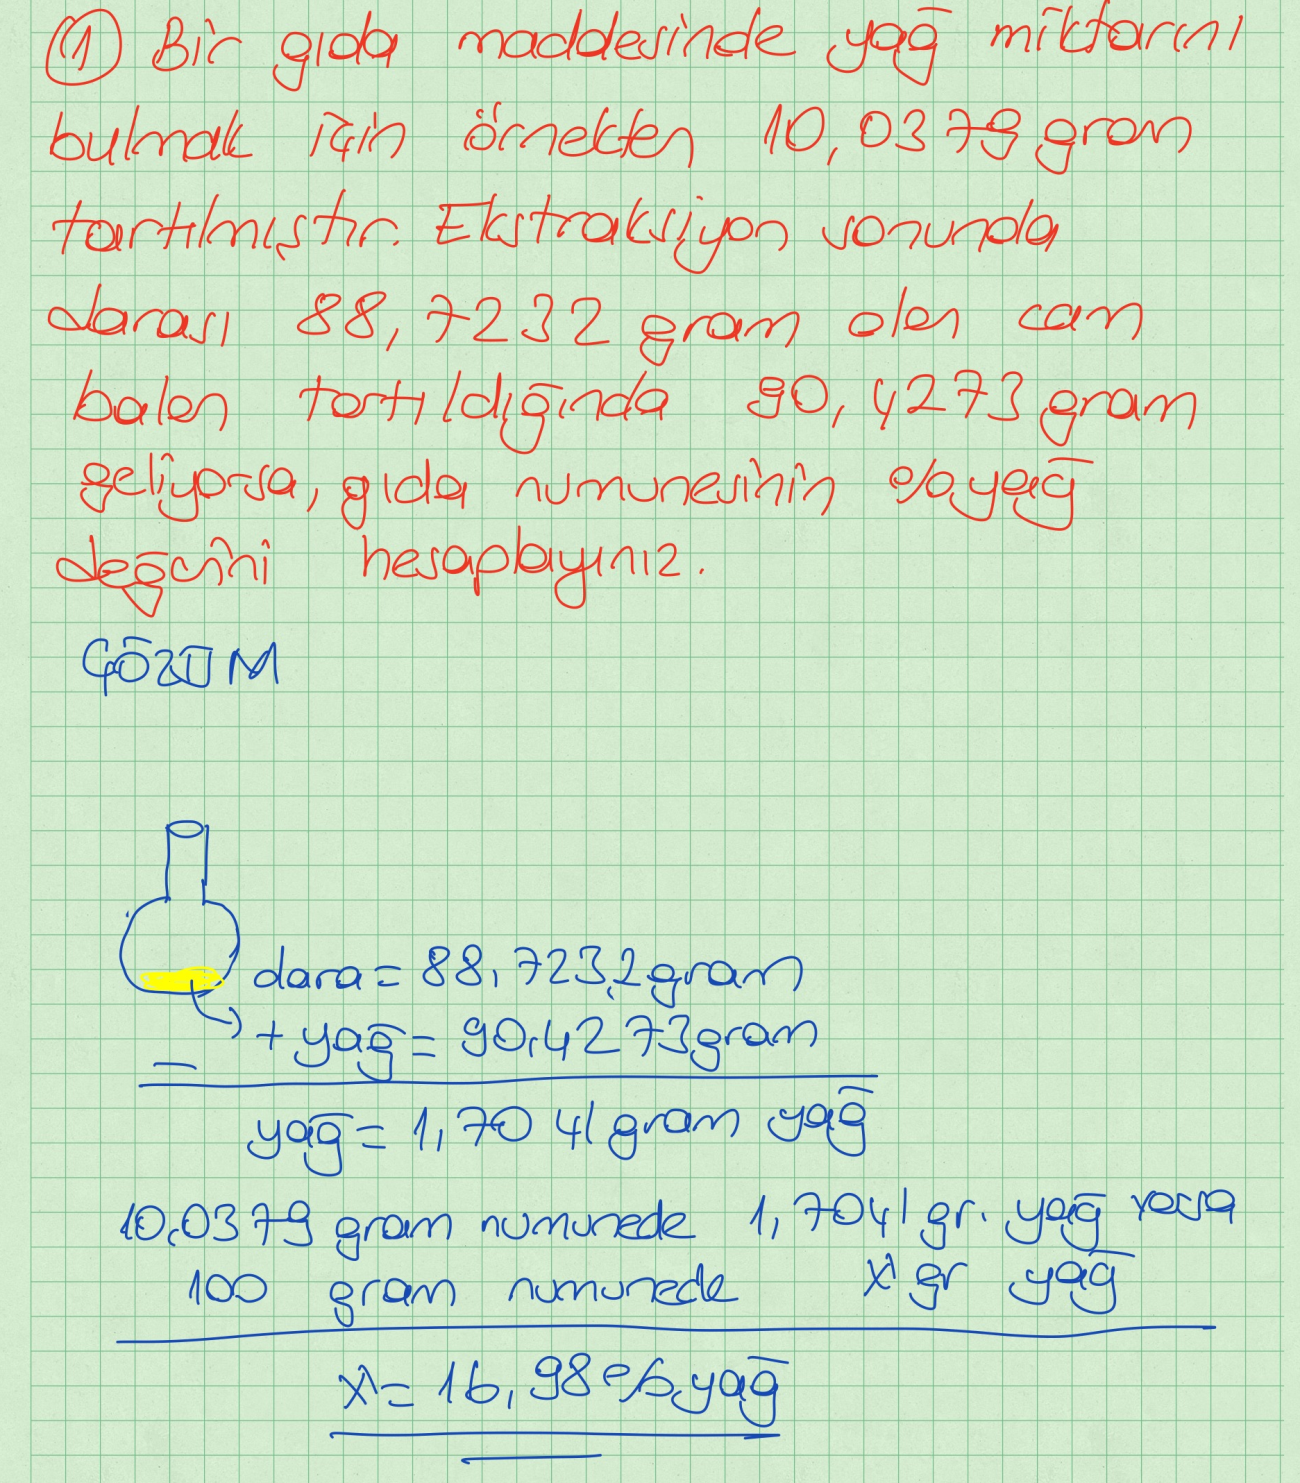 ① Bir gıda maddesinde yağ miktarını
bulmak için örnekten 10,0379 gram
tartılmıştır. Ekstraksiyon sonunda
darası 88,7232 gram olan cam
balon tartıldığında 90,4273 gram
geliyorsa, gıda numunesinin % yağ
değerini hesaplayınız.
ÇÖZÜM
dara = 88,7232 gram
+ yağ = 90,4273 gram
yağ = 1,7041 gram yağ
10,0379 gram numunede 1,7041 gr. yağ varsa
100 gram numunede x gr yağ
x = 16,98 % yağ